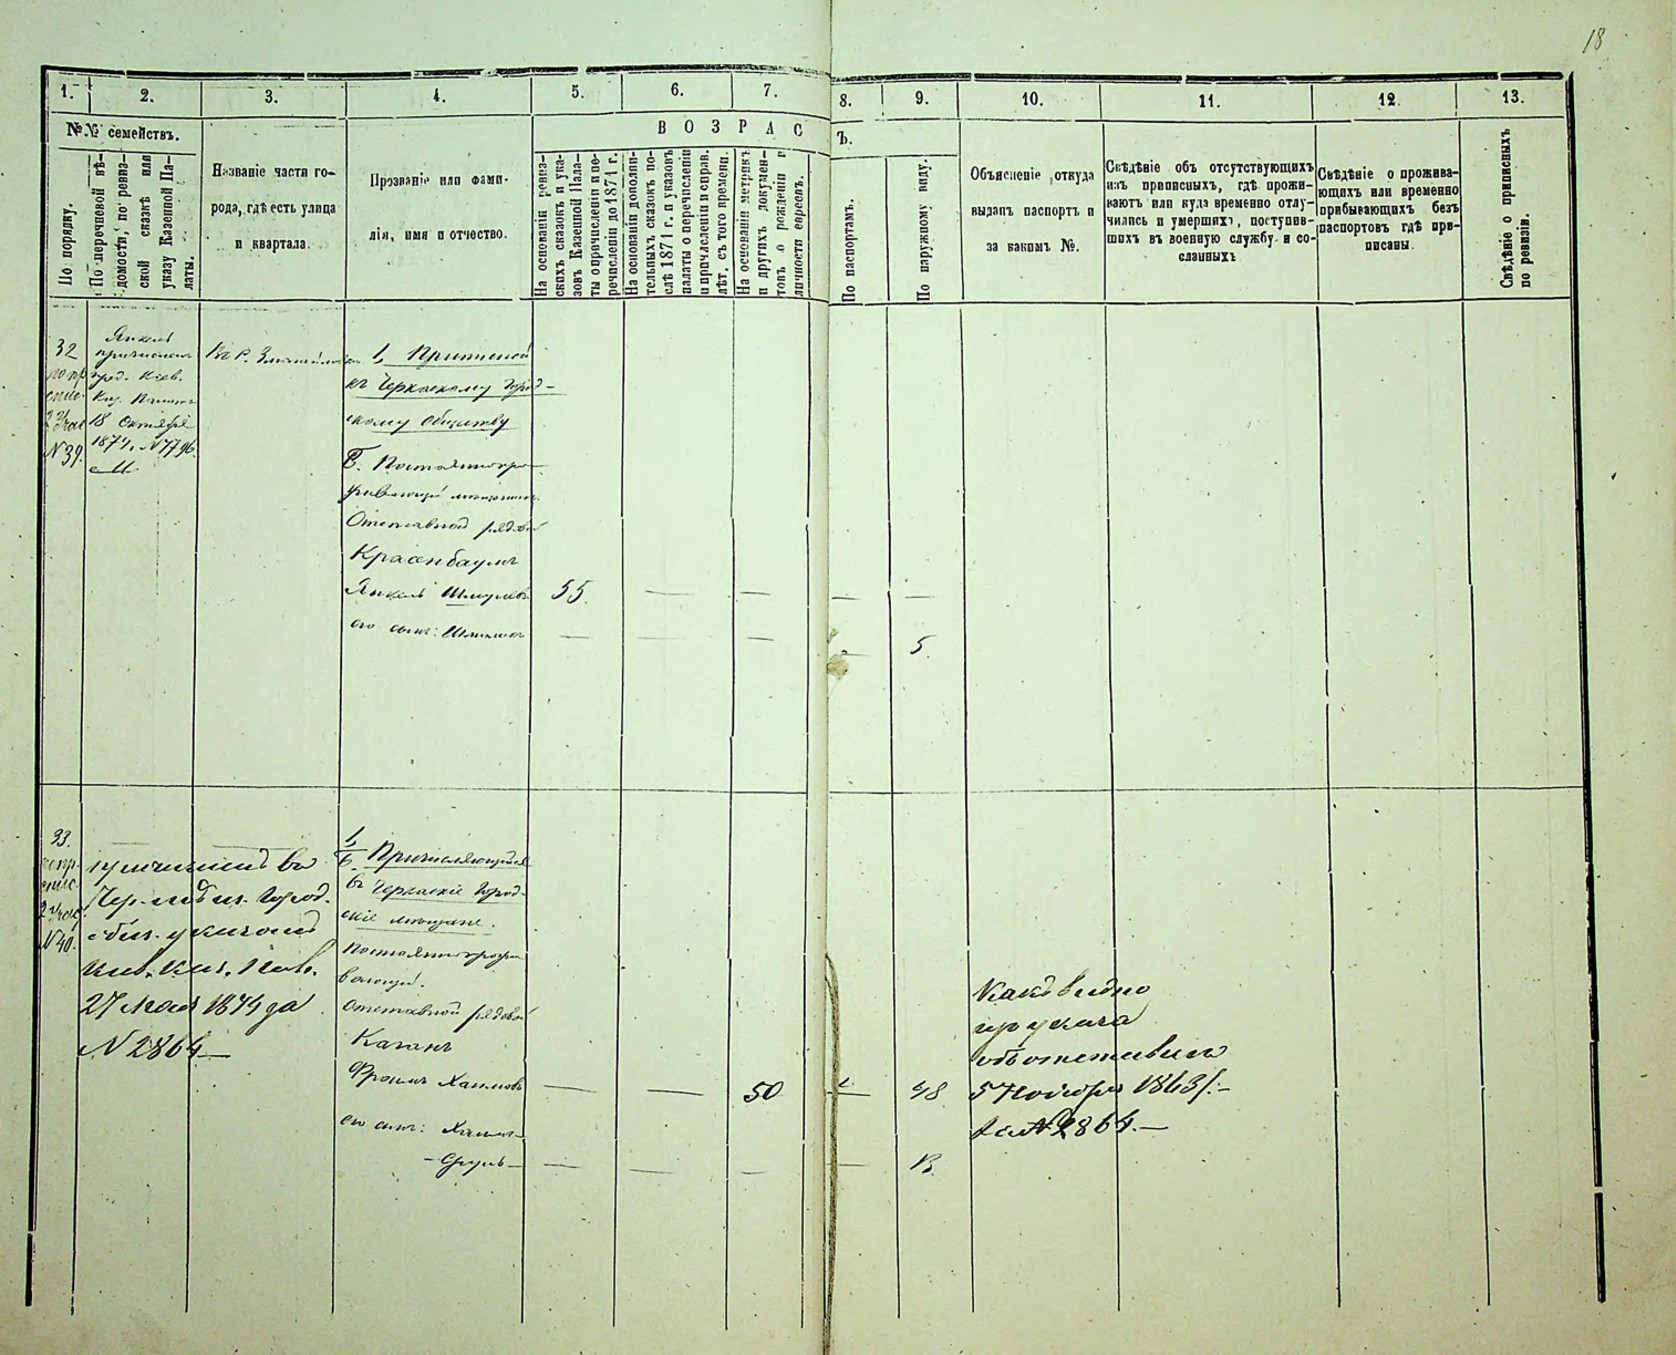 18
1. 2. 3. 4. 5. 6. 7. 8. 9. 10. 11. 12. 13.
№№ семействъ.
ВОЗРАС
Ъ.
По порядку.
По перечневой вѣ-
домости, по ревиз-
ской сказкѣ или
указу Казенной Па-
латы.
Названіе части го-
рода, гдѣ есть улица
и квартала.
Прозваніе или фами-
лія, имя и отчество.
На основаніи ревиз-
скихъ сказокъ и ука-
зовъ Казенной Пала-
ты о причисленіи и пе-
речисленіи до 1871 г.
На основаніи дополни-
тельныхъ сказокъ по-
слѣ 1871 г. и указовъ
палаты о перечисленіи
и причисленіи и справ.
лѣт. съ того времени.
На основаніи метрикъ
и другихъ докумен-
товъ о рожденіи и
личности евреевъ.
По паспортамъ.
По наружному виду.
Объясненіе откуда
выданъ паспортъ и
за какимъ №.
Свѣдѣніе объ отсутствующихъ
изъ приписныхъ, гдѣ прожи-
ваютъ или куда временно отлу-
чились и умершихъ, поступив-
шихъ въ военную службу и со-
сланныхъ
Свѣдѣніе о прожива-
ющихъ или временно
прибывающихъ безъ
паспортовъ гдѣ при-
писаны.
Свѣдѣніе о приписныхъ
по ревизіи.
32
2 Учас
N 39.
Янкель
Кіев.
18 Октября
1874, N 7796.
1, Приписной
къ Черкаскому Город-
скому Обществу
Б. Постоянно про-
Отставной рядовой
Красенбаумъ
Янкель Шмулевъ 55. — — — —
его сынъ: — — — — 5.
33.
2 Учас
N 40.
причислен во
Город.
указомъ
27 Мая 1874 года
N 2864 —
1,
Б. Причисляющійся
въ Черкаскіе Город-
скіе мещане.
Отставной рядовой
Каганъ
Фроимъ Хаимовъ — — 50 — 48
его сынъ: Хаимъ-
- Сруль - — — — — 13.
Какъ видно
изъ указа
объ отставки
5 Ноября 1863 г. —
за N 2864. —